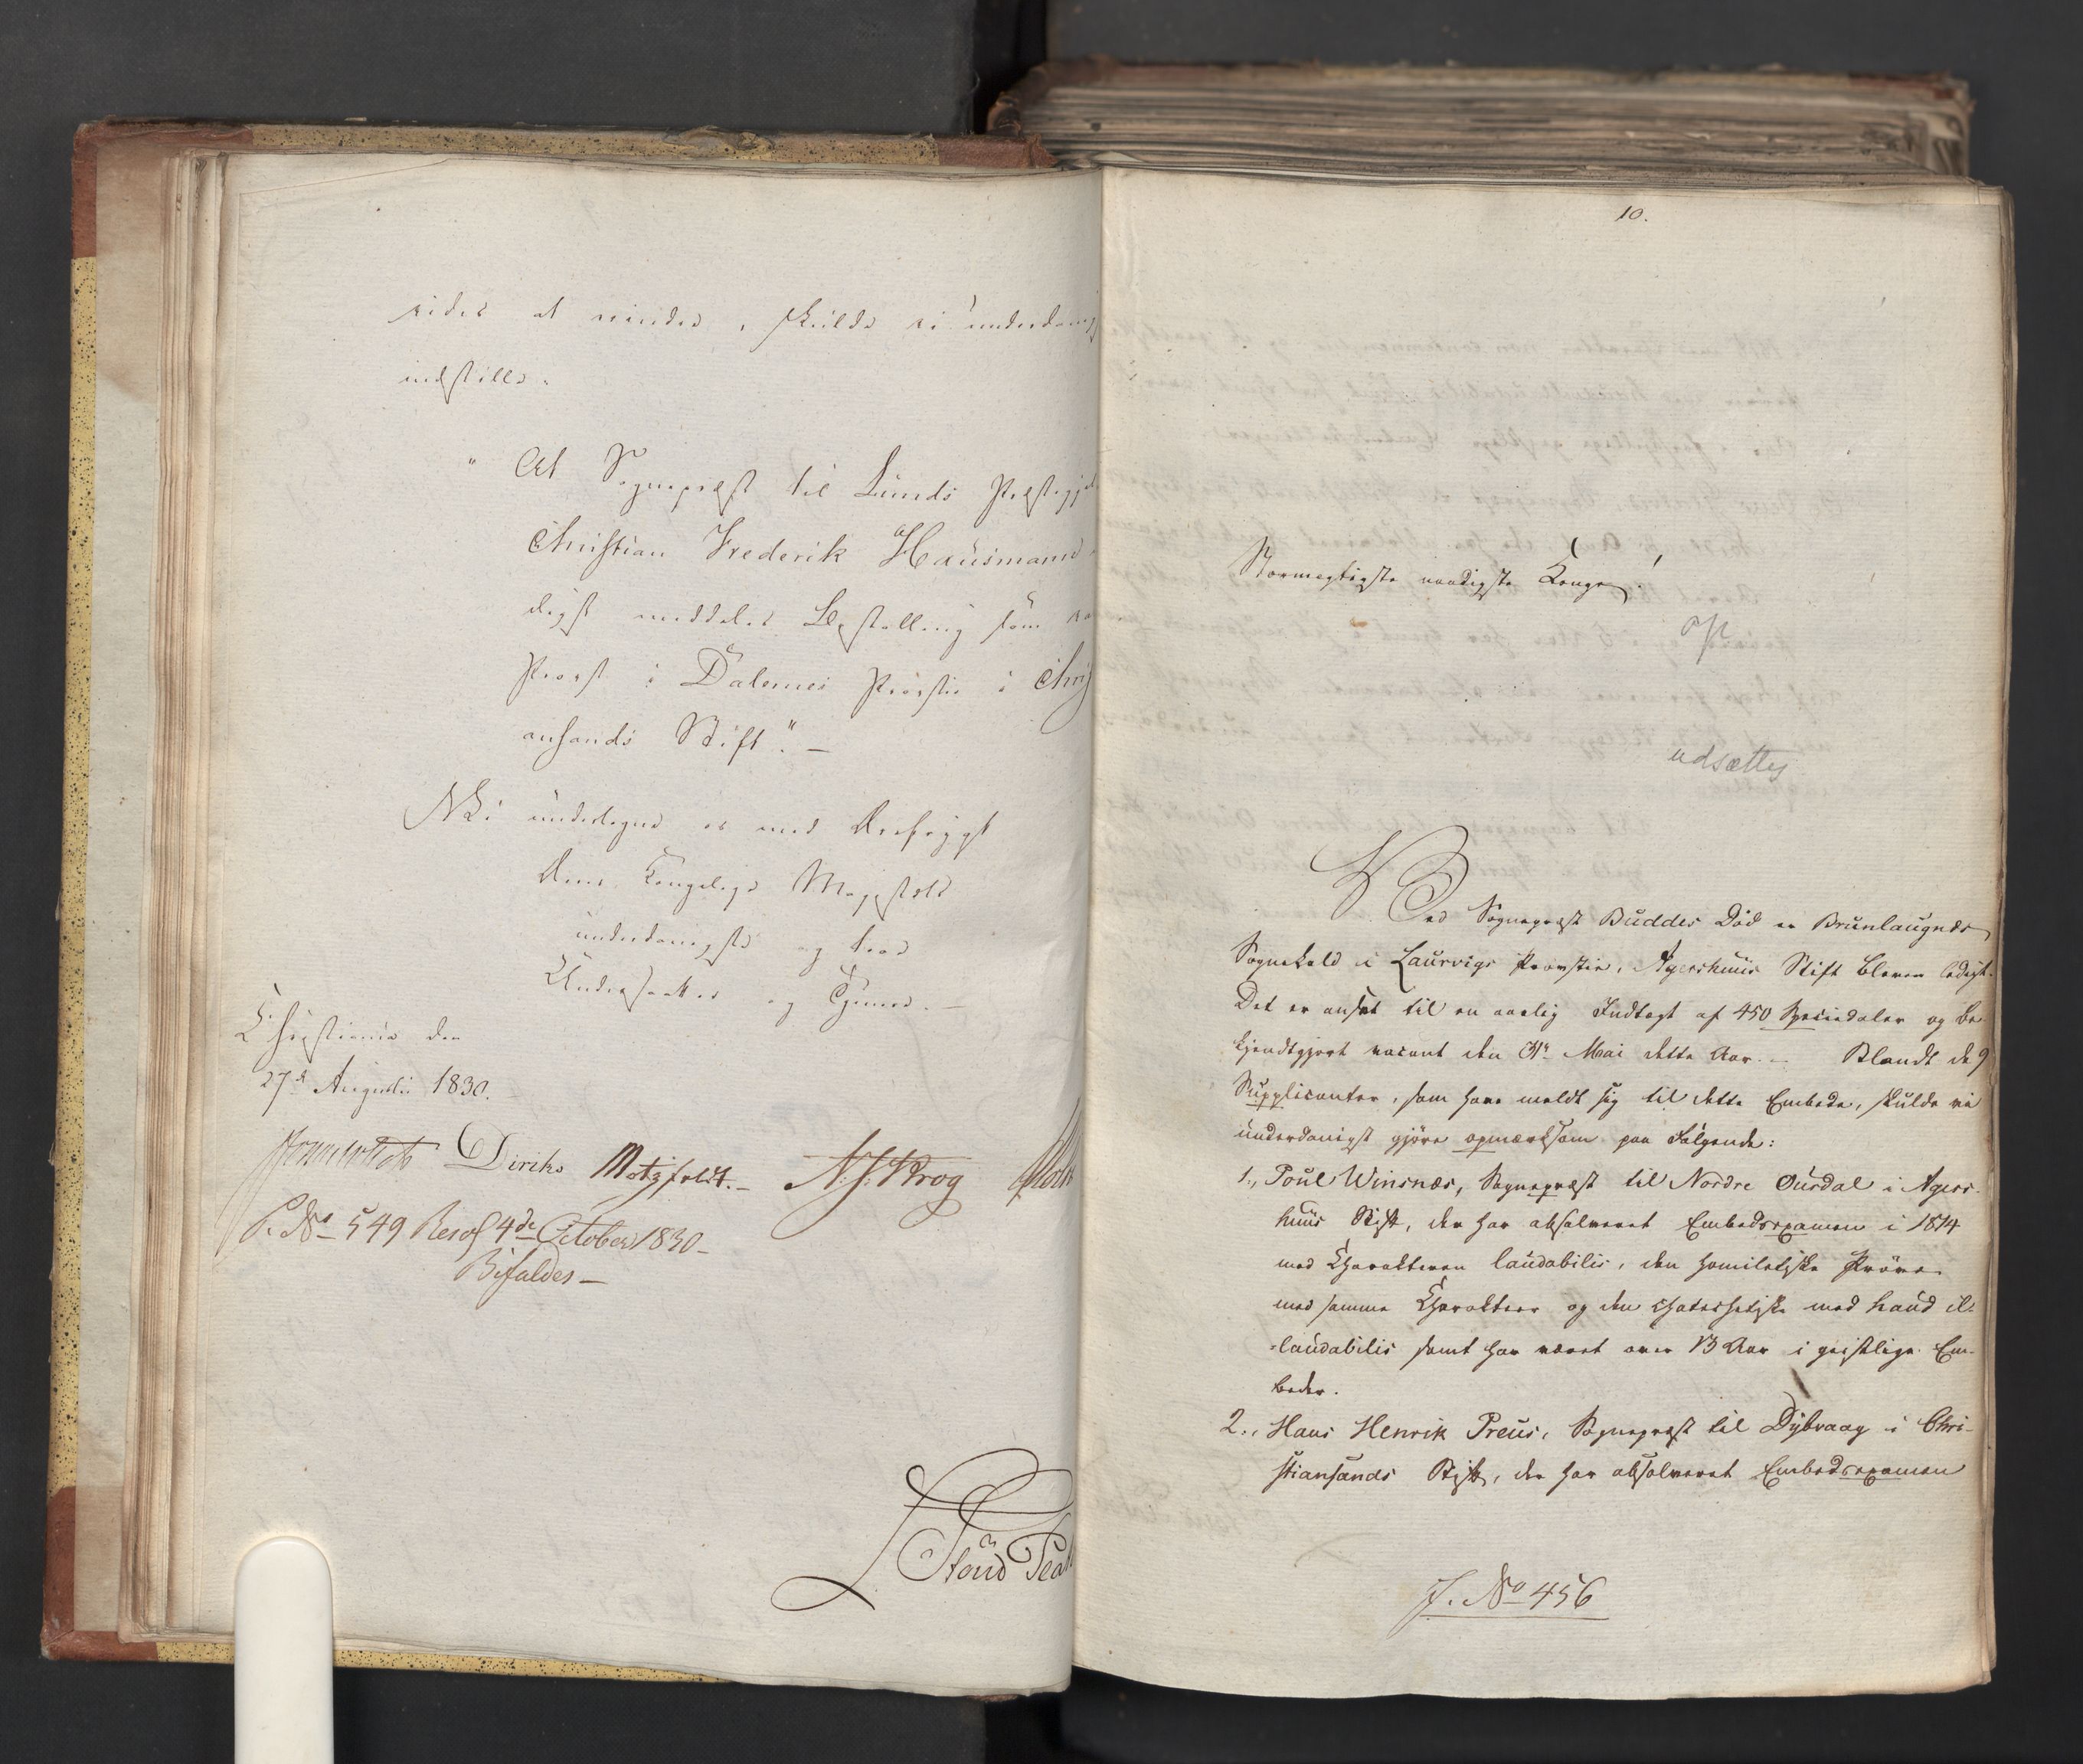 rides at vindes, skulde vi underdanig
indstille:
" At Sognepræst til Lunds Præstegje
Christian Frederik Hausmann
digst meddeles Bestalling som
Provst i Dalernes Provstie i Chri
ansands Stift." —
Vi undertegne os med Ærefrygt
Deres Kongelige Majestæts
underdanigste og troe
Undersaatter og Tjenere. —
Christiania den
27de Augusti 1830.
Diriks Motzfeldt. — N. J. Krog
P. No 549 Resol 4de October 1830 —
Bifaldes —
10.
Stormægtigste naadigste Konge!
op
udsættes
Ved Sognepræst Buddes Død er Brunlaugnæs
Sognekald i Laurvigs Provstie, Agershuus Stift bleven ledigt.
Det er ansat til en aarlig Indtægt af 450 Speciedaler og be
kjendtgjort vacant den 31te Mai dette Aar. — Blandt de 9
Supplicanter, som have meldt sig til dette Embede, skulde vi
underdanigst gjøre opmærksom paa Følgende:
1., Poul Winsnæs, Sognepræst til Nordre Ourdal i Agers-
huus Stift, der har absolveret Embedsexamen i 1814
med Charakteren laudabilis, den homiletiske Prøve
med samme Charakteer og den chatechetiske med haud il-
-laudabilis samt har været over 13 Aar i geistlige Em-
beder.
2., Hans Henrik Preus, Sognepræst til Dybvaag i Chri-
stiansands Stift, der har absolveret Embedsexamen
J. No 456